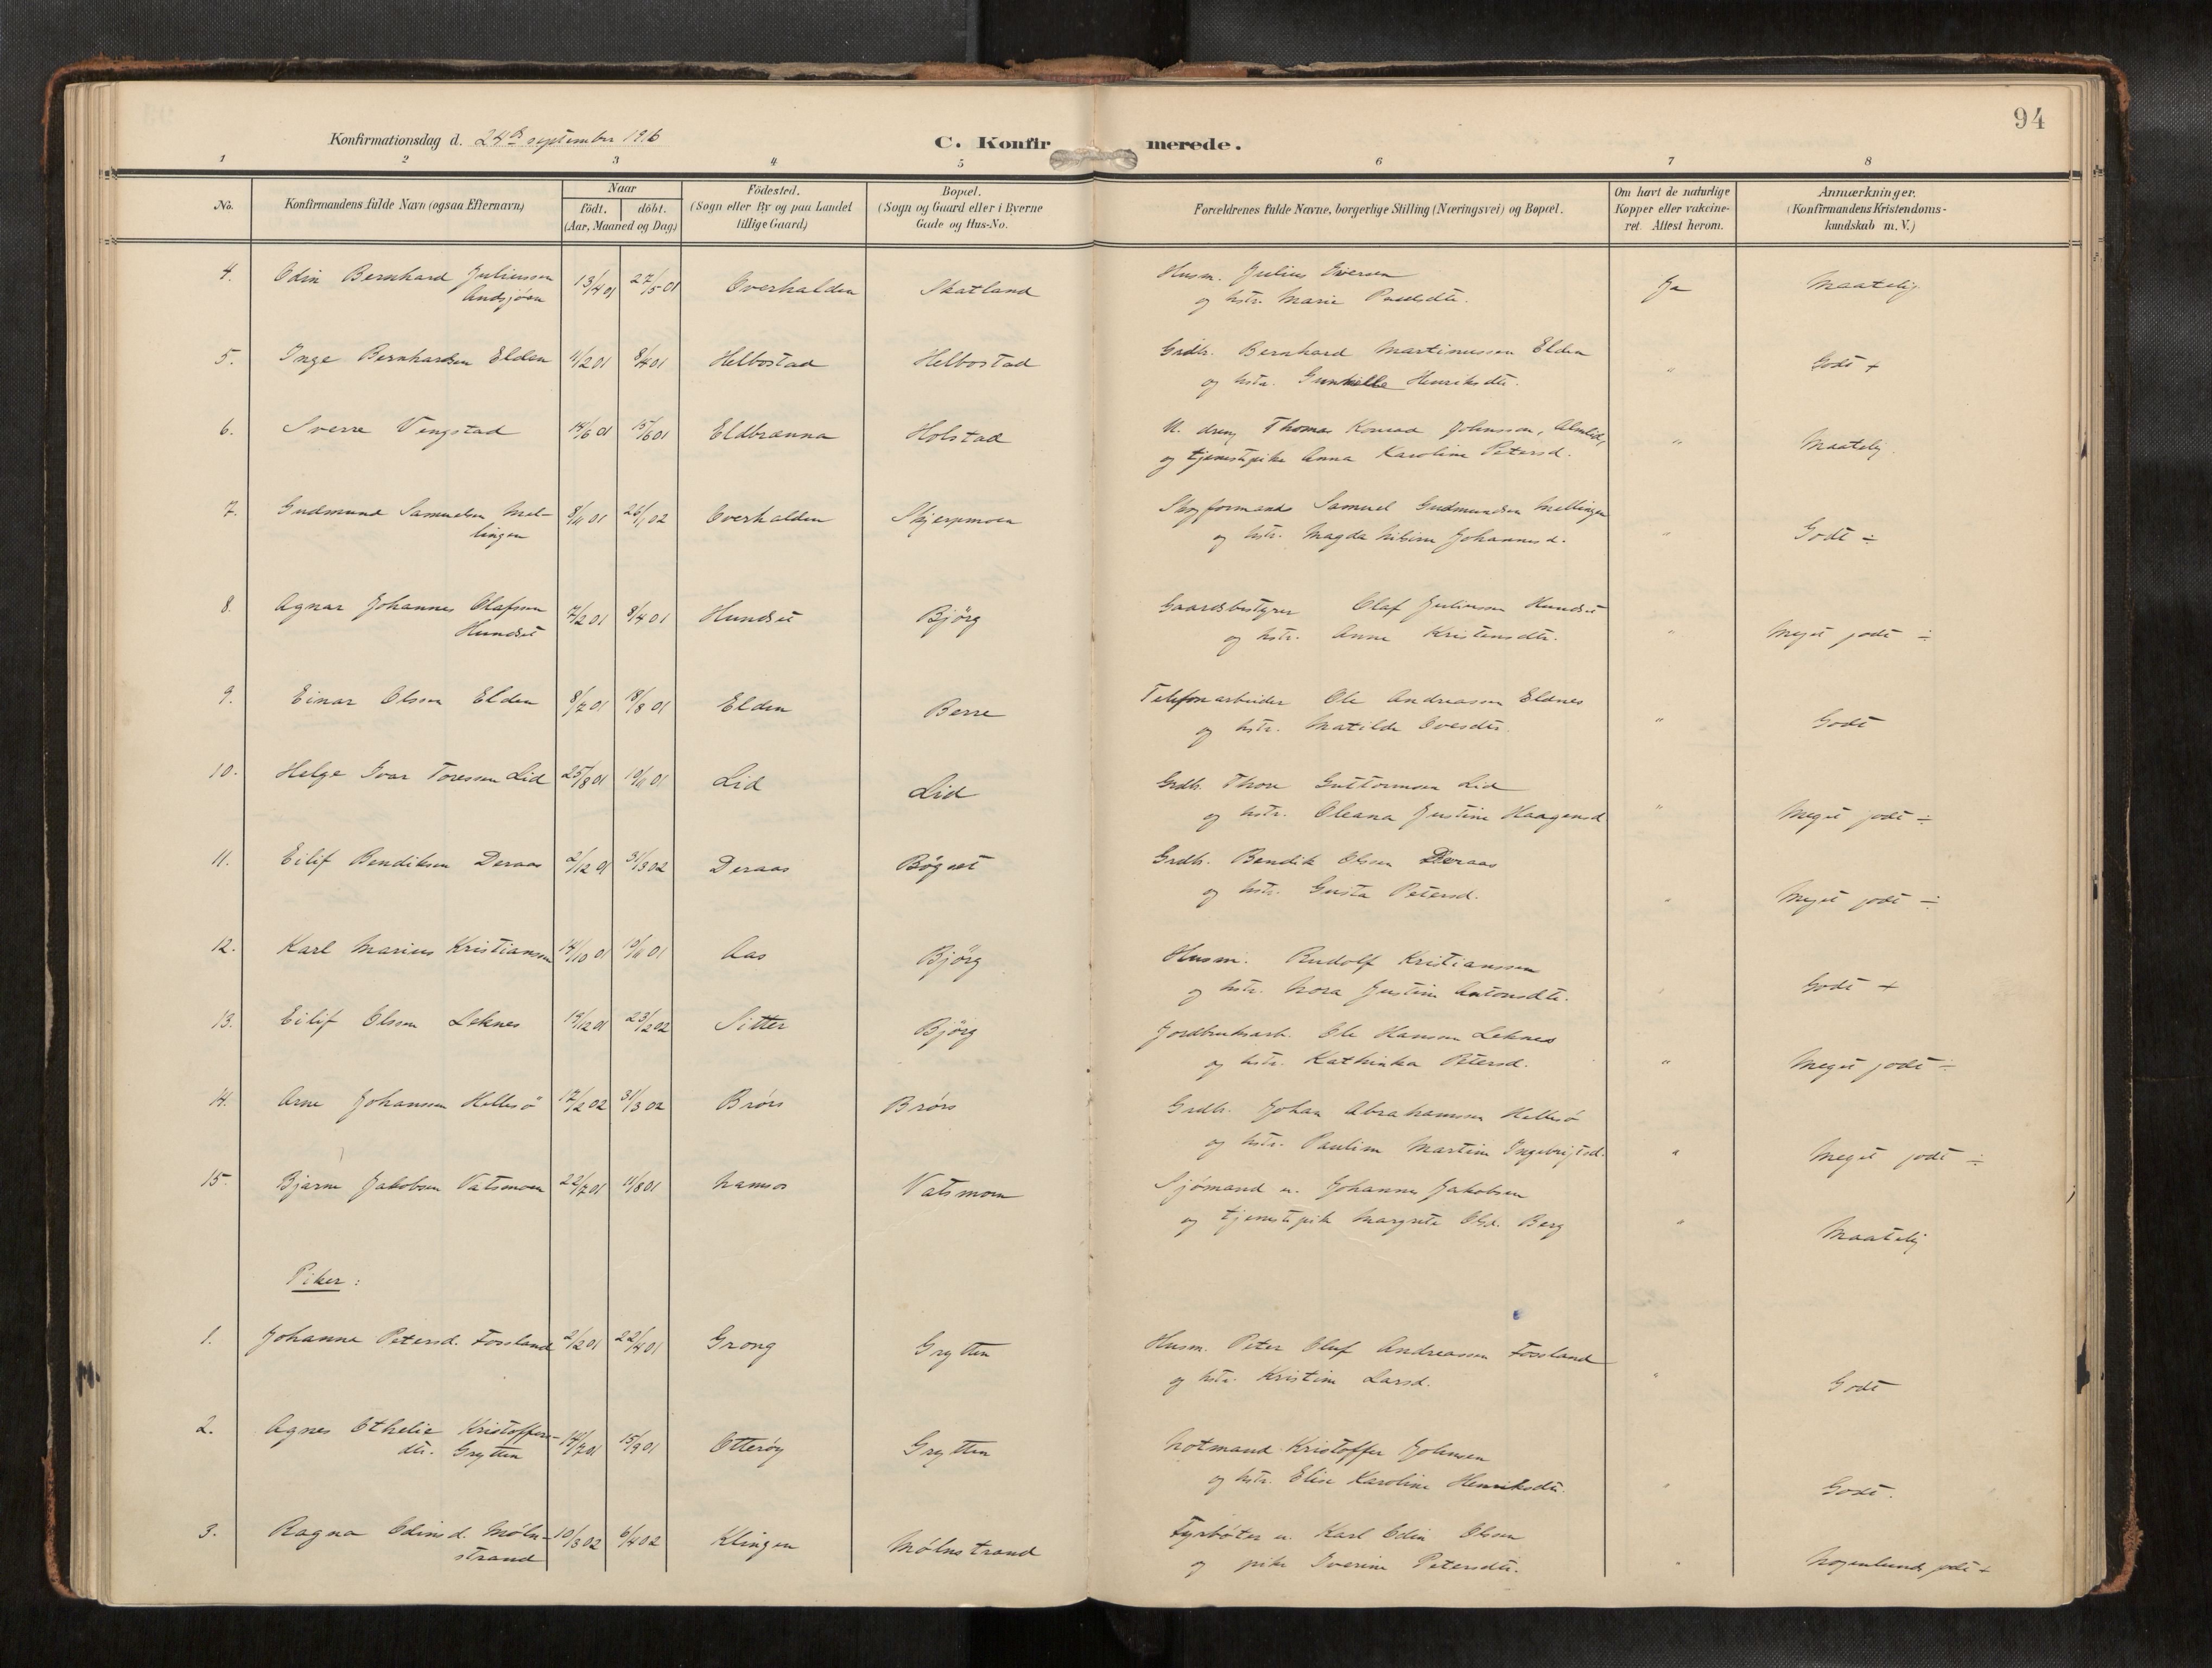 94
Konfirmationsdag d. 24de september 1916
C. Konfirmerede.
1 2 3 4 5 6 7 8
No.
Konfirmandens fulde Navn (ogsaa Efternavn)
Naar
födt. döbt.
(Aar, Maaned og Dag)
Födested.
(Sogn eller By og paa Landet
tillige Gaard)
Bopæl.
(Sogn og Gaard eller i Byerne
Gade og Hus-No.
Forældrenes fulde Navne, borgerlige Stilling (Næringsvei) og Bopæl.
Om havt de naturlige
Kopper eller vakcine-
ret. Attest herom.
Anmærkninger.
(Konfirmandens Kristendoms-
kundskab m. V.)
4. Odin Bernhard Juliussen 13/4 01 27/5 01 Overhalden Skatland Husm. Julius Iversen Ja Maatelig
Andsjøen og hstr. Marie Paulsdtr.
5. Inge Bernhardsen Elden 11/2 01 8/4 01 Helbostad Helbostad Grdbr. Bernhard Martinussen Elden " Godt +
og hstr. Henriksdtr.
6. Sverre Vengstad 14/6 01 15/6 01 Eldbranna Holstad U. dreng Thomas Konrad Johnsson, Almlid, " Maatelig.
og tjenestpike Anna Karoline Petersd.
7. Gudmund Samuelsen Mel- 8/11 01 26/1 02 Overhalden Skjerpmoen Skogformand Samuel Gudmundsen Mellingen " Godt ÷
lingen og hstr. Magda Johannesd.
8. Agnar Johannes Olafsen 7/2 01 8/4 01 Hundset Bjørg Gaardsbestyrer Olaf Juliussen Hundset " Meget godt ÷
Hundset og hstr. Anna Kristensdtr.
9. Einar Olsen Elden 8/7 01 18/8 01 Elden Berre Telefonarbeider Ole Andreassen Eldnes " Godt
og hstr. Matilde Ovesdtr.
10. Helge Ivar Toressen Lid 25/8 01 10/11 01 Lid Lid Grdbr. Thore Guttormsen Lid " Meget godt ÷
og hstr. Oleana Justine Haagensd
11. Eilif Bendiksen Deraas 2/12 01 31/3 02 Deraas Bøgset Grdbr. Bendik Olsen Deraas " Meget godt ÷
og hstr. Gusta Petersd.
12. Karl Marius Kristiansen 14/10 01 10/11 01 Aas Bjørg Husm. Rudolf Kristianssen " Godt +
og hstr. Nora Justine Antonsdtr.
13. Eilif Olsen Leknes 19/12 01 23/2 02 Sitter Bjørg Jordbruksarb. Ole Hansen Leknes " Meget godt ÷
og hstr. Kathinka Petersd.
14. Arne Johansen Hellesö 17/2 02 31/3 02 Brørs Brørs Grdbr. Johan Abrahamsen Hellesø " Meget godt ÷
og hstr. Pauline Martine Ingebrigtsd.
15. Bjarne Jakobsen Vatsmoen 22/7 01 11/8 01 Namsos Vatsmoen Sjømand u. Johannes Jakobsen " Maatelig
og tjenestpike Margrete Olsd. Berg
Piker:
1. Johanna Petersd. Fossland 2/2 01 22/4 01 Grong Grytten Husm. Peter Oluf Andreassen Fossland " Godt
og hstr. Kristine Larsd.
2. Agnes Othelie Kristoffers- 14/7 01 15/9 01 Otterøy Grytten Notmand Kristoffer Johnsen " Godt.
dtr. Grytten og hstr. Elise Karoline Henriksdtr.
3. Ragna Odinsd. Møln- 10/3 02 6/4 02 Klingen Mølnstrand Fyrbøter u. Karl Odin Olsen " Nogenlunde godt +
strand og pike Iverine Petersdtr.